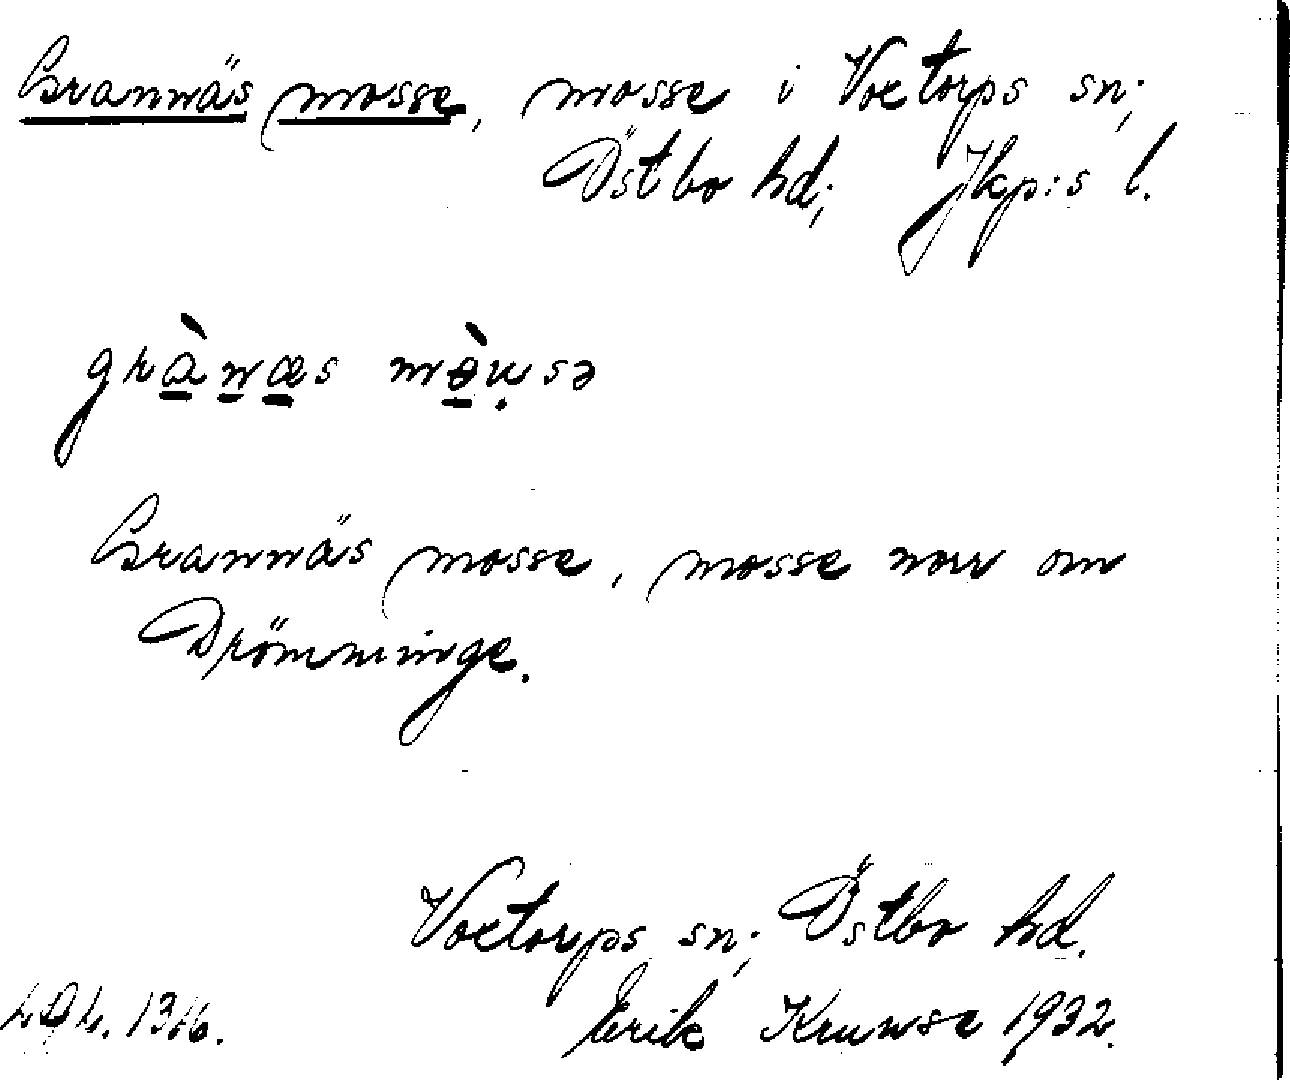 Grannäs mosse, mosse i Voxtorps sn;
Östbo hd; Jkp:s l.
grànæs mòu̇sə
Grannäs mosse, mosse norr om
Drömminge.
Voxtorps sn; Östbo hd.
Erik Krunse 1932.